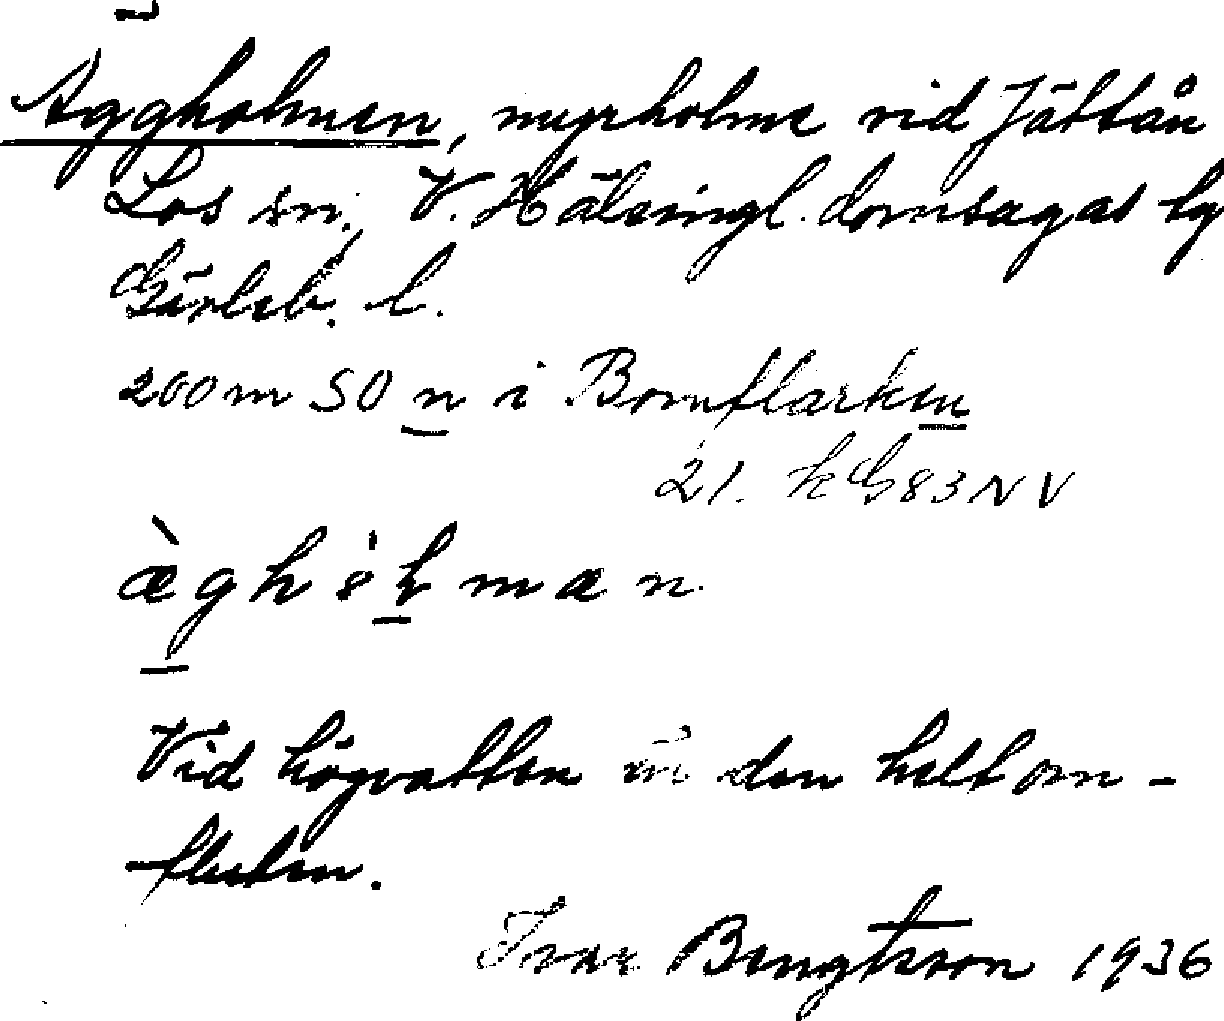 Äggholmen, myrholme vid Jättån
Los sn, V. Hälsingl. domsagas tg
Gävleb. l.
200 m SO n i Bornflarken
21. kG83NV
æ̀ghòlman
Vid högvatten är den helt om-
fluten.
Ivar Bengtsson 1936